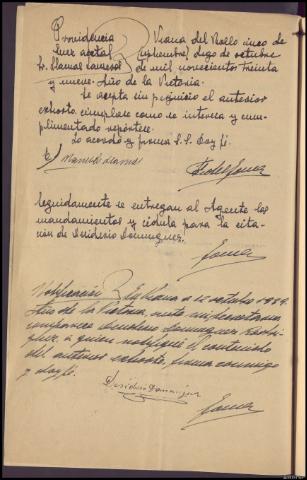 Providencia Viana del Bollo cinco de
Juez acctal septiembre, digo de octubre
Sr. Blanco de mil novecientos treinta
y nueve. Año de la Victoria.
Se acepta sin perjuicio el anterior
exhorto cúmplase como se interesa y cum-
plimentado repórtese.
Lo acordó y firma S.S. Doy fé.
Seguidamente se entregan al Agente los
mandamientos y cédula para la cita-
ción de Desiderio Dominguez.
Notificación En Viana a 12 octubre 1939.
Año de la Victoria, ante mi Secretario
comparece Desiderio Dominguez
a quien notifiqué el contenido
del anterior exhorto, firma conmigo
y doy fé.
Desiderio Dominguez